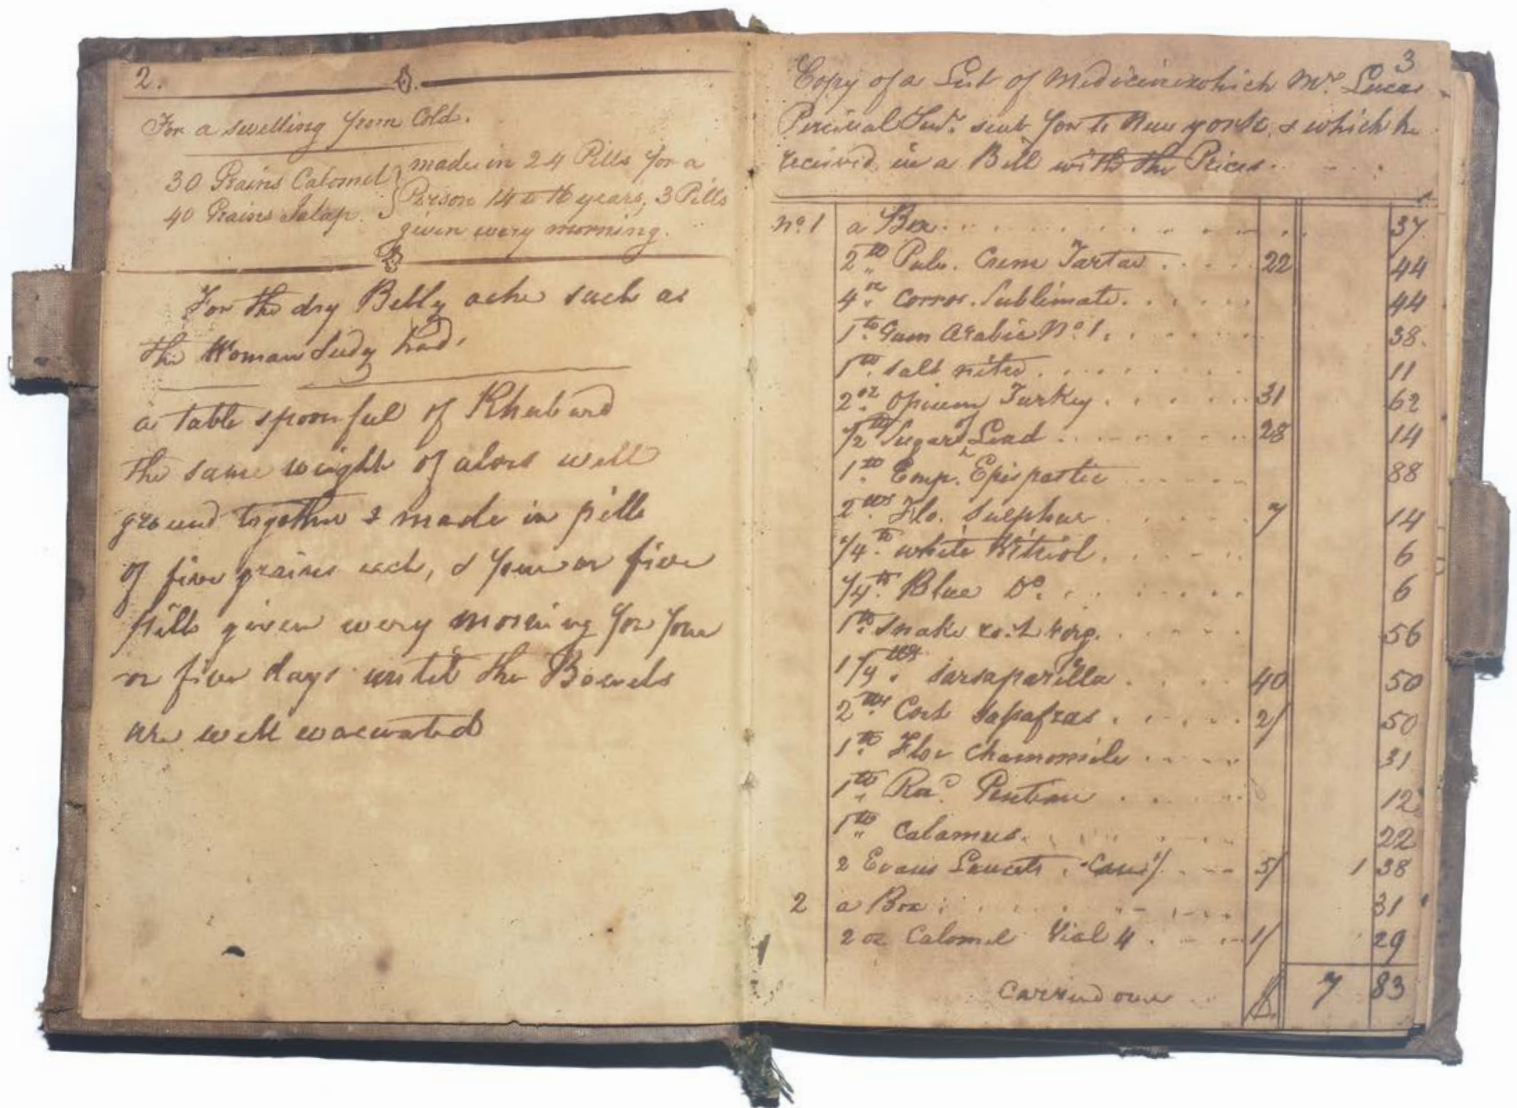 2.
For a swelling from Cold.
30 Grains Calomel } made in 24 Pills for a
40 Grains Jalap. } Person 14 to 16 years, 3 Pills
given every morning.
For the dry Belly ache such as
the Woman Judy had.
a table spoonful of Rhubard
the same weight of aloes well
ground together & made in pills
of five grains each, & four or five
pills given every morning for four
or five days until the Bowels
are well evacuated
3
Copy of a List of Medicine which Mr. Lucas
Percival sent for to New york, & which he
received in a Bill with the Prices.
No. 1 a Box 37
2 lb Pulv. Crem Tartar 22 44
4 oz Corros. Sublimate. 44
1 lb Gum Arabic No. 1. 38.
1 lb Salt nitre 11
2 oz Opium Turkey 31 62
1/2 lb Sugar of Lead 28 14
1 lb Emp. Epispastic 88
2 lbs Flo. Sulphur 7 14
1/4 lb white Vitriol. 6
1/4 lb Blue Do. 6
1 lb snake root Virg. 56
1 1/4 lbs Sarsaparilla 40 50
2 lbs Cort Sasafras 2/ 50
1 lb Flor Chamomile 31
1 lb Rad. Gentian 12
1 lb Calamus. 22
2 Evans Lancets, Case 1/ 5/ 1 38
2 a Box 31
2 oz Calomel Vial 4 1/ 29
Carried over $ 7 83